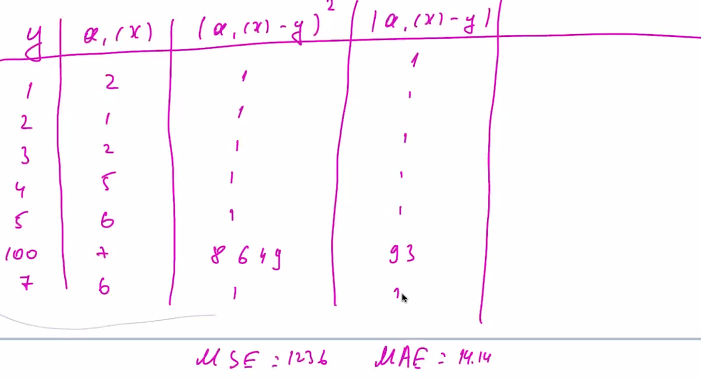 y a₁(x) (a₁(x)-y)² |a₁(x)-y|
1 2 1 1
2 1 1 1
3 2 1 1
4 5 1 1
5 6 1 1
100 7 8649 93
7 6 1 1
MSE = 1236 MAE = 14.14